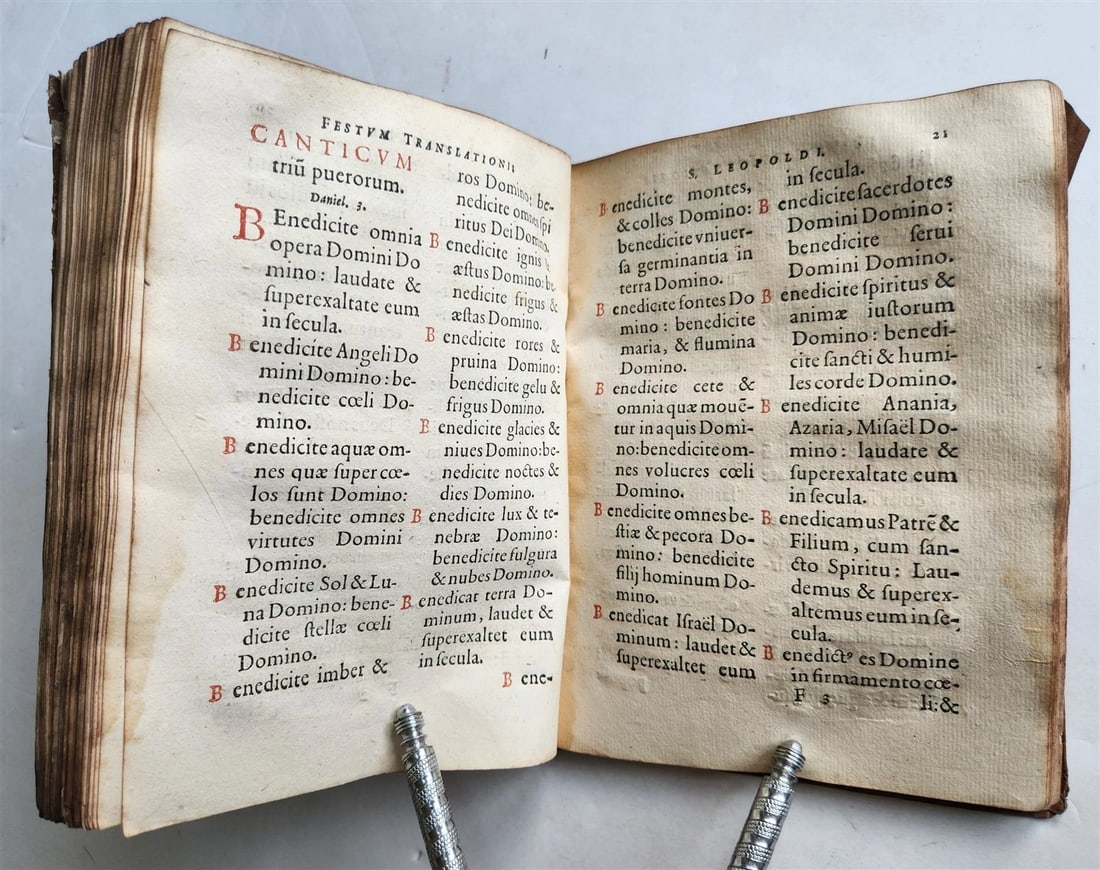 FESTVM TRANSLATIONIS
CANTICVM
triũ puerorum.
Daniel. 3.
BEnedicite omnia
opera Domini Do
mino: laudate &
ſuperexaltate eum
in ſecula.
Benedicite Angeli Do
mini Domino: be-
nedicite cœli Do-
mino.
Benedicite aquæ om-
nes quæ ſuper cœ-
los ſunt Domino:
benedicite omnes
virtutes Domini
Domino.
Benedicite Sol & Lu-
na Domino: bene-
dicite ſtellæ cœli
Domino.
Benedicite imber &
ros Domino: be-
nedicite omnes ſpi
ritus Dei Domino.
Benedicite ignis &
æſtus Domino: be-
nedicite frigus &
æſtas Domino.
Benedicite rores &
pruina Domino:
benedicite gelu &
frigus Domino.
Benedicite glacies &
niues Domino: be-
nedicite noctes &
dies Domino.
Benedicite lux & te-
nebræ Domino:
benedicite fulgura
& nubes Domino.
Benedicat terra Do-
minum, laudet &
ſuperexaltet eum
in ſecula.
Bene-
S. LEOPOLDI.
21
Benedicite montes,
& colles Domino:
benedicite vniuer-
ſa germinantia in
terra Domino.
Benedicite fontes Do
mino: benedicite
maria, & flumina
Domino.
Benedicite cete &
omnia quæ mouẽ-
tur in aquis Domi-
no: benedicite om-
nes volucres cœli
Domino.
Benedicite omnes be-
ſtiæ & pecora Do-
mino: benedicite
filij hominum Do-
mino.
Benedicat Iſraël Do-
minum: laudet &
ſuperexaltet eum
in ſecula.
Benedicite ſacerdotes
Domini Domino:
benedicite ſerui
Domini Domino.
Benedicite ſpiritus &
animæ iuſtorum
Domino: benedi-
cite ſancti & humi-
les corde Domino.
Benedicite Anania,
Azaria, Miſaël Do-
mino: laudate &
ſuperexaltate eum
in ſecula.
Benedicamus Patrẽ &
Filium, cum ſan-
cto Spiritu: Lau-
demus & ſuperex-
altemus eum in ſe-
cula.
Benedictꝰ es Domine
in firmamento cœ-
F 3 li: &